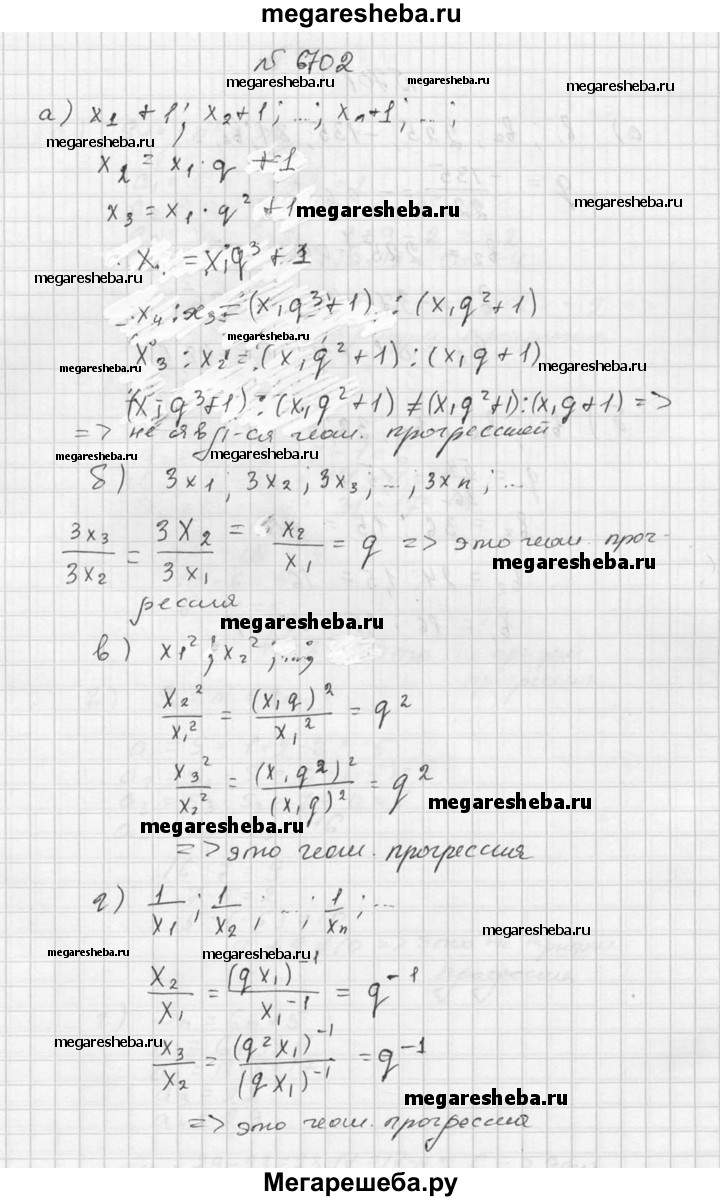 megaresheba.ru
№ 6702
megaresheba.ru megaresheba.ru
а) x₁ + 1; x₂+1; ...; xₙ+1; ...;
megaresheba.ru
x₂ = x₁ · q + 1
x₃ = x₁ · q² + 1 megaresheba.ru megaresheba.ru
x₄ = x₁q³ + 1
megaresheba.ru megaresheba.ru
x₄ : x₃ = (x₁q³+1) : (x₁q²+1)
megaresheba.ru
x₃ : x₂ = (x₁q²+1) : (x₁q+1) megaresheba.ru
megaresheba.ru
(x₁q³+1) : (x₁q²+1) ≠ (x₁q²+1):(x₁q+1) =>
=> не явл-ся геом. прогрессией
megaresheba.ru megaresheba.ru megaresheba.ru
б) 3x₁; 3x₂; 3x₃; ...; 3xₙ; ...
3x₃/3x₂ = 3x₂/3x₁ = x₂/x₁ = q => это геом. прог-
megaresheba.ru
рессия
megaresheba.ru
в) x₁²; x₂²; ...;
x₂²/x₁² = (x₁q)²/x₁² = q²
x₃²/x₂² = (x₁q²)²/(x₁q)² = q²
megaresheba.ru
megaresheba.ru
=> это геом. прогрессия
г) 1/x₁; 1/x₂; ...; 1/xₙ; ...
megaresheba.ru
megaresheba.ru megaresheba.ru
x₂/x₁ = (qx₁)⁻¹/x₁⁻¹ = q⁻¹
megaresheba.ru
x₃/x₂ = (q²x₁)⁻¹/(qx₁)⁻¹ = q⁻¹
megaresheba.ru
=> это геом. прогрессия
Мегарешеба.ру